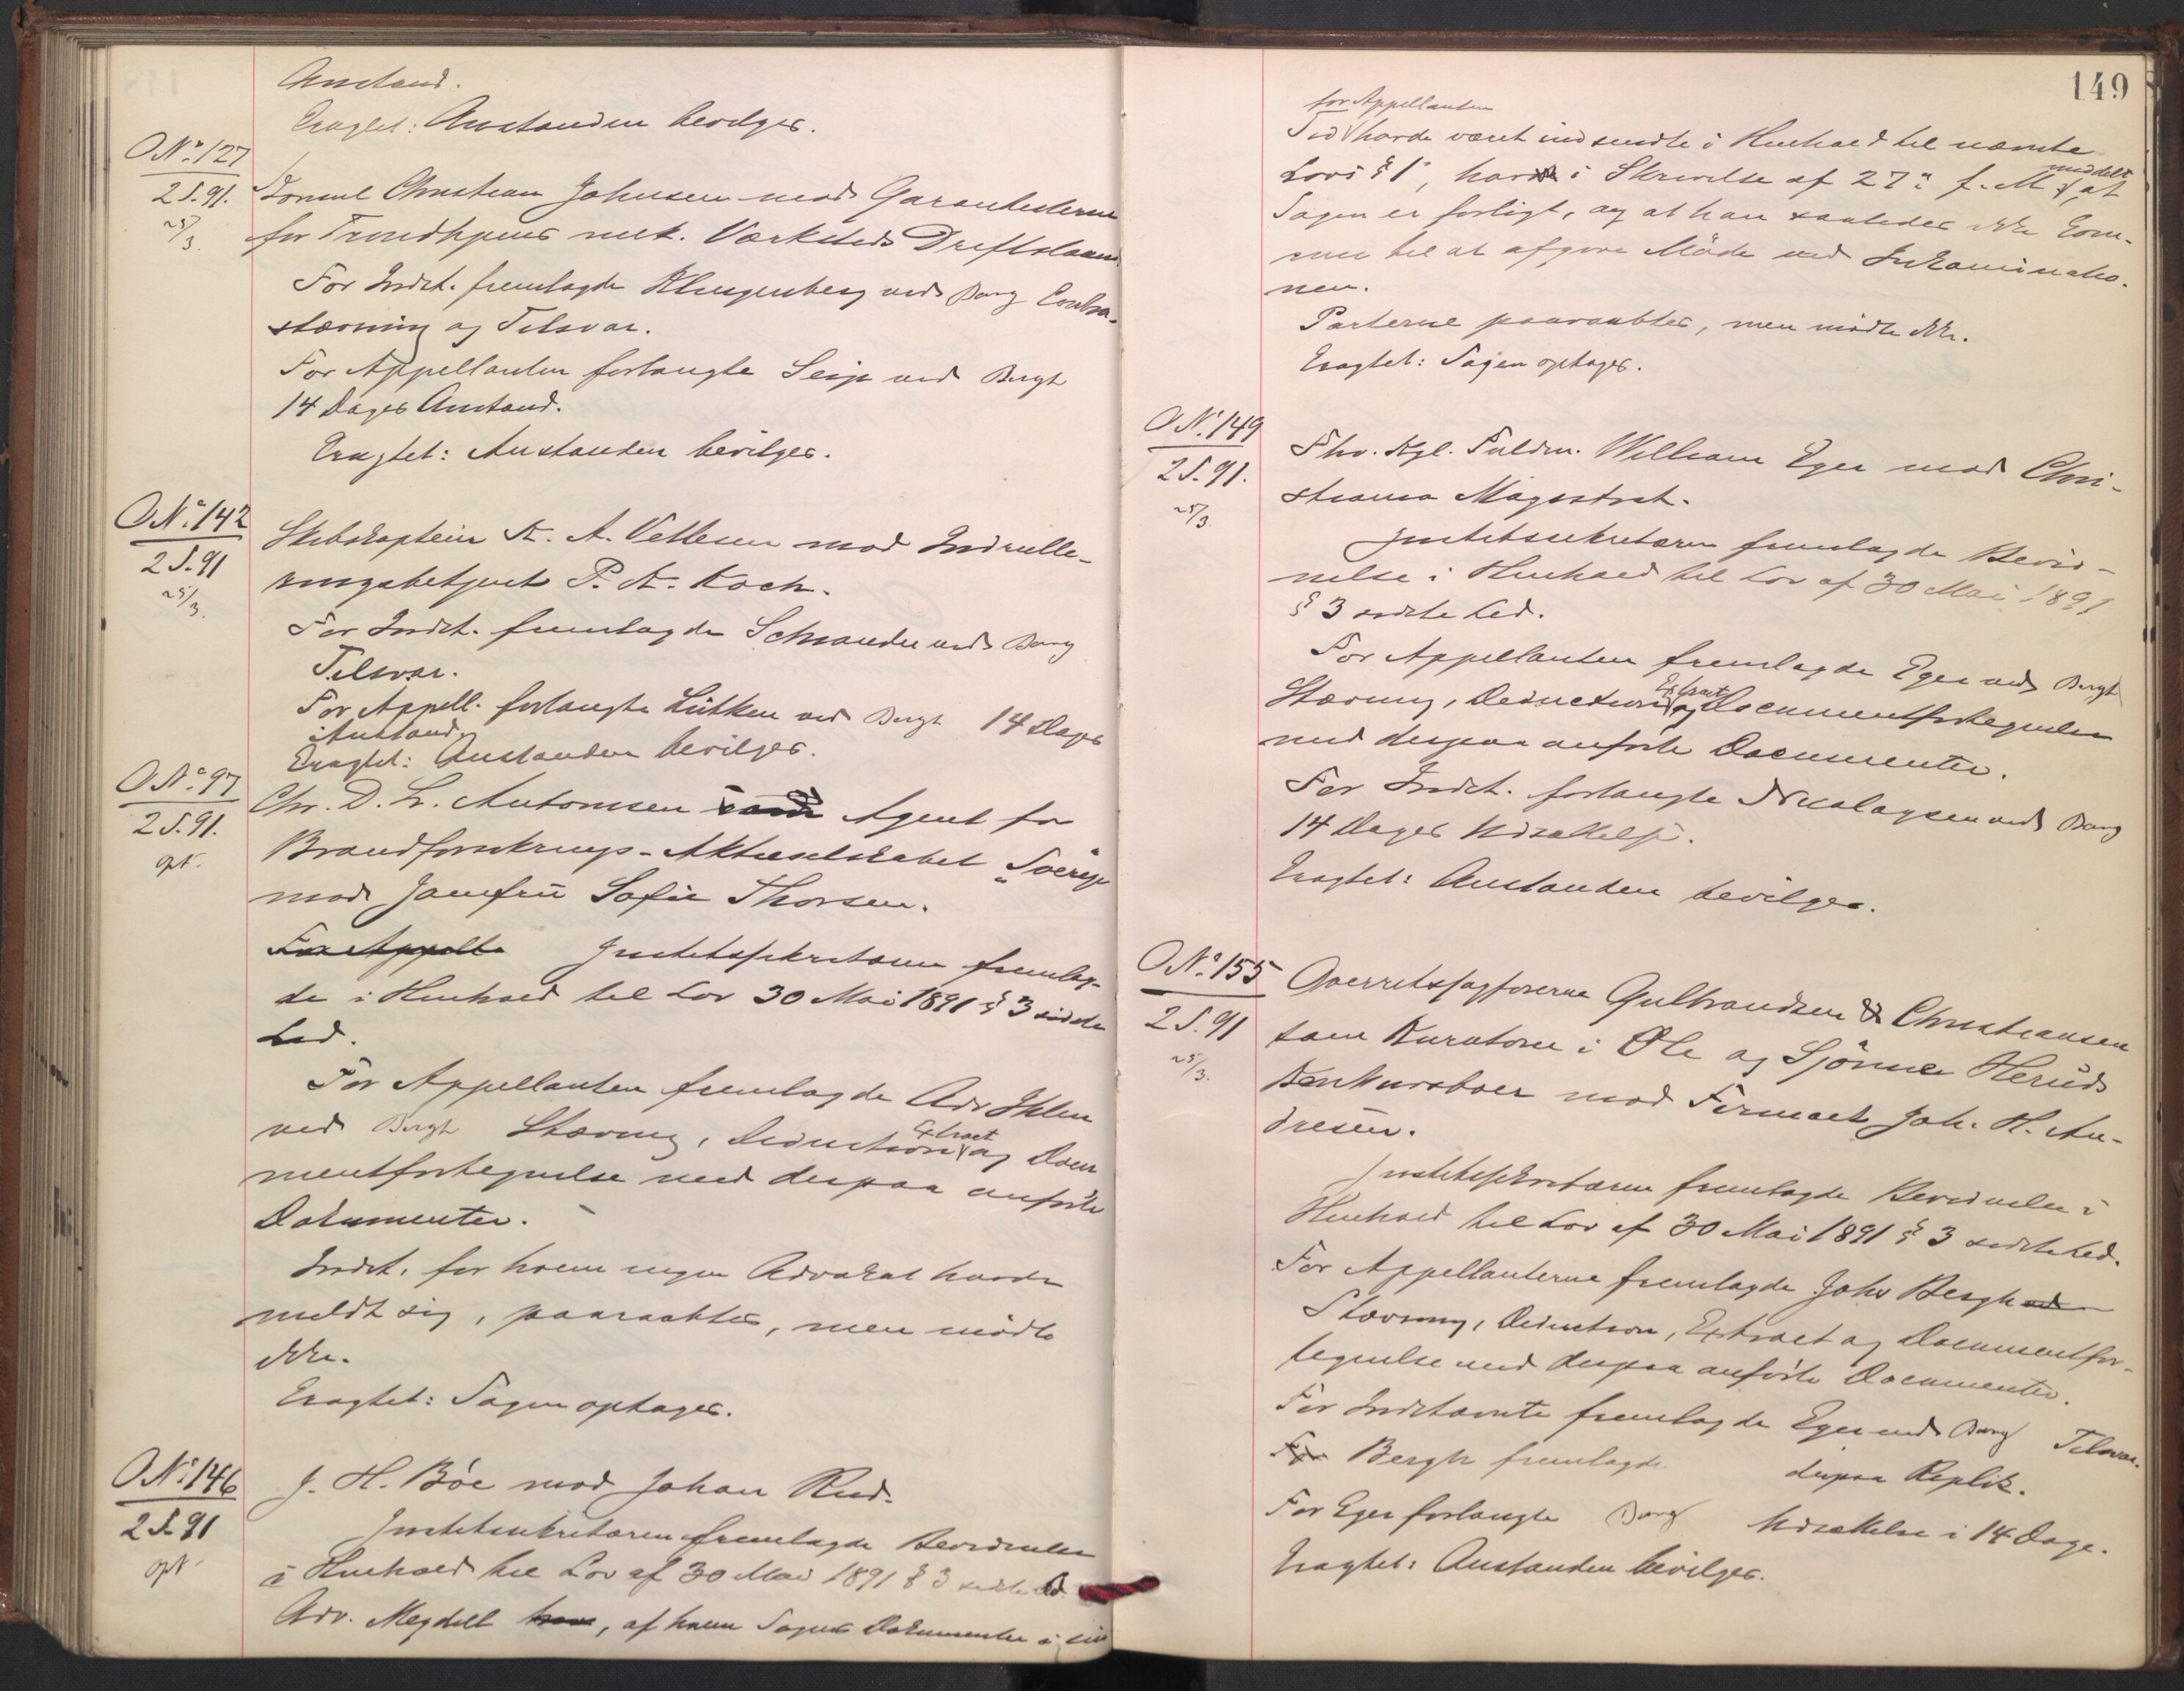 Anstand.
Eragtet: Anstanden bevilges.
O No. 127
2 S. 91.
25/3.
Konsul Christian Johnsen mod Garantisterne
for Trondhjems mek. Værksteds Driftslaan.
For Indst. fremlagde Klingenberg ved Bang Contra-
stævning og Tilsvar.
For Appellanten forlangte Seip ved Bergh
14 Dages Anstand.
Eragtet: Anstanden bevilges.
O No. 142
2 S. 91
25/3.
Skibskaptein A. A. Vettesen mod Indrulle-
ringsbetjent P. A. Koch.
For Indst. fremlagde Schiander ved Bang
Tilsvar.
For Appell. forlangte Lütken ved Bergh 14 Dages
Anstand.
Eragtet: Anstanden bevilges.
O No. 97
2 S. 91.
opt.
Chr. D. L. Antonisen som Agent for
Brandforsikrings-Aktieselskabet "Sverige"
mod Jomfru Sofie Thorsen.
For Appell. Justitssekretæren fremlag-
de i Henhold til Lov 30 Mai 1891 § 3 sidste
Led.
For Appellanten fremlagde Adv Ihlen
ved Bergh Stævning, Deduction, Extract og Docu
mentfortegnelse med derpaa anførte
Dokumenter.
Indst. for hvem ingen Advokat havde
meldt sig, paaraabtes, men mødte
ikke.
Eragtet: Sagen optages.
O No. 146
2 S. 91
opt.
J. H. Bøe mod Johan Rud.
Justitssekretæren fremlagde Bevidnelse
i Henhold til Lov af 30 Mai 1891 § 3 sidste Led.
Adv. Meydell have, af hvem Sagens Dokumenter i sin
149
for Appellanten
Tid havde været indsendte i Henhold til nævnte
Lovs § 1, har i Skrivelse af 27de f. M. meddelt, at
Sagen er forligt, og at han saaledes ikke kom-
mer til at afgive Møde ved Inkaminatio-
nen.
Parterne paaraabtes, men mødte ikke.
Eragtet: Sagen optages.
O No. 149
2 S. 91.
25/3.
Fhv. Kgl. Fuldm. William Eger mod Chri-
stiania Magistrat.
Justitssekretæren fremlagde Bevid-
nelse i Henhold til Lov af 30 Mai 1891
§ 3 sidste Led.
For Appellanten fremlagde Eger ved Bergh
Stævning, Deduction, Extract og Documentfortegnelse
med derpaa anførte Documenter.
For Indst. forlangte Nicolaysen ved Bang
14 Dages Udsættelse.
Eragtet: Anstanden bevilges.
O No. 155
2 S. 91
25/3.
Overretssagførerne Gulbrandsen & Christiansen
som Kuratorer i Ole og Sjønne Heruds
Konkursboer mod Firmaet Joh. H. An-
dresen.
Justitssekretæren fremlagde Bevidnelse i
Henhold til Lov af 30 Mai 1891 § 3 sidste Led.
For Appellanterne fremlagde Johs Bergh ved
Stævning, Deduction, Extract og Documentfor-
tegnelse med derpaa anførte Documenter.
For Indstævnte fremlagde Eger ved Bang Tilsvar.
For Bergh fremlagde derpaa Replik.
For Eger forlangte Bang Udsættelse i 14 Dage.
Eragtet: Anstanden bevilges.